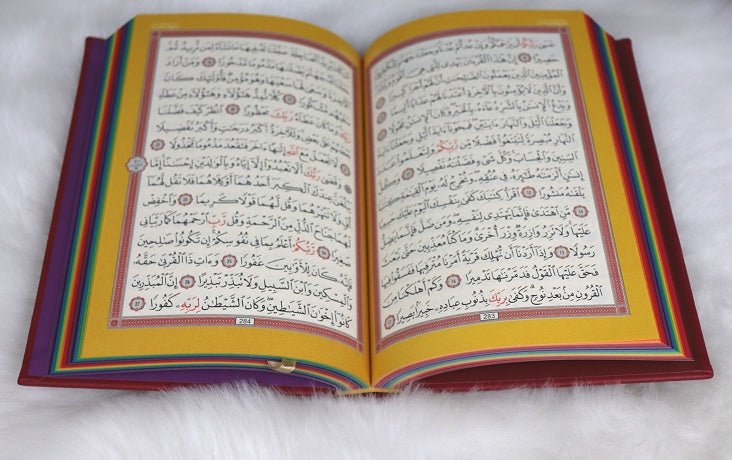 عَسٰى رَبُّكُمْ اَنْ يَرْحَمَكُمْ وَاِنْ عُدْتُمْ عُدْنَا وَجَعَلْنَا جَهَنَّمَ لِلْكَافِرِينَ
حَصِيرًا ٨ اِنَّ هٰذَا الْقُرْاٰنَ يَهْدِى لِلَّتِى هِىَ اَقْوَمُ وَيُبَشِّرُ
الْمُؤْمِنِينَ الَّذِينَ يَعْمَلُونَ الصَّالِحَاتِ اَنَّ لَهُمْ اَجْرًا كَبِيرًا ٩
وَاَنَّ الَّذِينَ لَا يُؤْمِنُونَ بِالْاٰخِرَةِ اَعْتَدْنَا لَهُمْ عَذَابًا اَلِيمًا ١٠
وَيَدْعُ الْاِنْسَانُ بِالشَّرِّ دُعَاءَهُ بِالْخَيْرِ وَكَانَ الْاِنْسَانُ عَجُولًا ١١
وَجَعَلْنَا الَّيْلَ وَالنَّهَارَ اٰيَتَيْنِ فَمَحَوْنَا اٰيَةَ الَّيْلِ وَجَعَلْنَا اٰيَةَ
النَّهَارِ مُبْصِرَةً لِتَبْتَغُوا فَضْلًا مِنْ رَبِّكُمْ وَلِتَعْلَمُوا عَدَدَ
السِّنِينَ وَالْحِسَابَ وَكُلَّ شَىْءٍ فَصَّلْنَاهُ تَفْصِيلًا ١٢ وَكُلَّ
اِنْسَانٍ اَلْزَمْنَاهُ طَائِرَهُ فِى عُنُقِهِ وَنُخْرِجُ لَهُ يَوْمَ الْقِيٰمَةِ كِتَابًا
يَلْقٰيهُ مَنْشُورًا ١٣ اِقْرَأْ كِتَابَكَ كَفٰى بِنَفْسِكَ الْيَوْمَ عَلَيْكَ حَسِيبًا
١٤ مَنِ اهْتَدٰى فَاِنَّمَا يَهْتَدِى لِنَفْسِهِ وَمَنْ ضَلَّ فَاِنَّمَا يَضِلُّ
عَلَيْهَا وَلَا تَزِرُ وَازِرَةٌ وِزْرَ اُخْرٰى وَمَا كُنَّا مُعَذِّبِينَ حَتّٰى نَبْعَثَ
رَسُولًا ١٥ وَاِذَا اَرَدْنَا اَنْ نُهْلِكَ قَرْيَةً اَمَرْنَا مُتْرَفِيهَا فَفَسَقُوا فِيهَا
فَحَقَّ عَلَيْهَا الْقَوْلُ فَدَمَّرْنَاهَا تَدْمِيرًا ١٦ وَكَمْ اَهْلَكْنَا مِنَ
الْقُرُونِ مِنْ بَعْدِ نُوحٍ وَكَفٰى بِرَبِّكَ بِذُنُوبِ عِبَادِهِ خَبِيرًا بَصِيرًا ١٧
283
مَنْ كَانَ يُرِيدُ الْعَاجِلَةَ عَجَّلْنَا لَهُ فِيهَا مَا نَشَاءُ لِمَنْ نُرِيدُ ثُمَّ
جَعَلْنَا لَهُ جَهَنَّمَ يَصْلٰيهَا مَذْمُومًا مَدْحُورًا ١٨ وَمَنْ اَرَادَ
الْاٰخِرَةَ وَسَعٰى لَهَا سَعْيَهَا وَهُوَ مُؤْمِنٌ فَاُولٰئِكَ كَانَ
سَعْيُهُمْ مَشْكُورًا ١٩ كُلًّا نُمِدُّ هٰؤُلَاءِ وَهٰؤُلَاءِ مِنْ عَطَاءِ
رَبِّكَ وَمَا كَانَ عَطَاءُ رَبِّكَ مَحْظُورًا ٢٠ اُنْظُرْ كَيْفَ فَضَّلْنَا
بَعْضَهُمْ عَلٰى بَعْضٍ وَلَلْاٰخِرَةُ اَكْبَرُ دَرَجَاتٍ وَاَكْبَرُ تَفْضِيلًا
٢١ لَا تَجْعَلْ مَعَ اللّٰهِ اِلٰهًا اٰخَرَ فَتَقْعُدَ مَذْمُومًا مَخْذُولًا ٢٢
وَقَضٰى رَبُّكَ اَلَّا تَعْبُدُوا اِلَّا اِيَّاهُ وَبِالْوَالِدَيْنِ اِحْسَانًا اِمَّا
يَبْلُغَنَّ عِنْدَكَ الْكِبَرَ اَحَدُهُمَا اَوْ كِلَاهُمَا فَلَا تَقُلْ لَهُمَا
اُفٍّ وَلَا تَنْهَرْهُمَا وَقُلْ لَهُمَا قَوْلًا كَرِيمًا ٢٣ وَاخْفِضْ
لَهُمَا جَنَاحَ الذُّلِّ مِنَ الرَّحْمَةِ وَقُلْ رَبِّ ارْحَمْهُمَا كَمَا رَبَّيَانِى
صَغِيرًا ٢٤ رَبُّكُمْ اَعْلَمُ بِمَا فِى نُفُوسِكُمْ اِنْ تَكُونُوا صَالِحِينَ
فَاِنَّهُ كَانَ لِلْاَوَّابِينَ غَفُورًا ٢٥ وَاٰتِ ذَا الْقُرْبٰى حَقَّهُ
وَالْمِسْكِينَ وَابْنَ السَّبِيلِ وَلَا تُبَذِّرْ تَبْذِيرًا ٢٦ اِنَّ الْمُبَذِّرِينَ
كَانُوا اِخْوَانَ الشَّيَاطِينِ وَكَانَ الشَّيْطَانُ لِرَبِّهِ كَفُورًا ٢٧
284